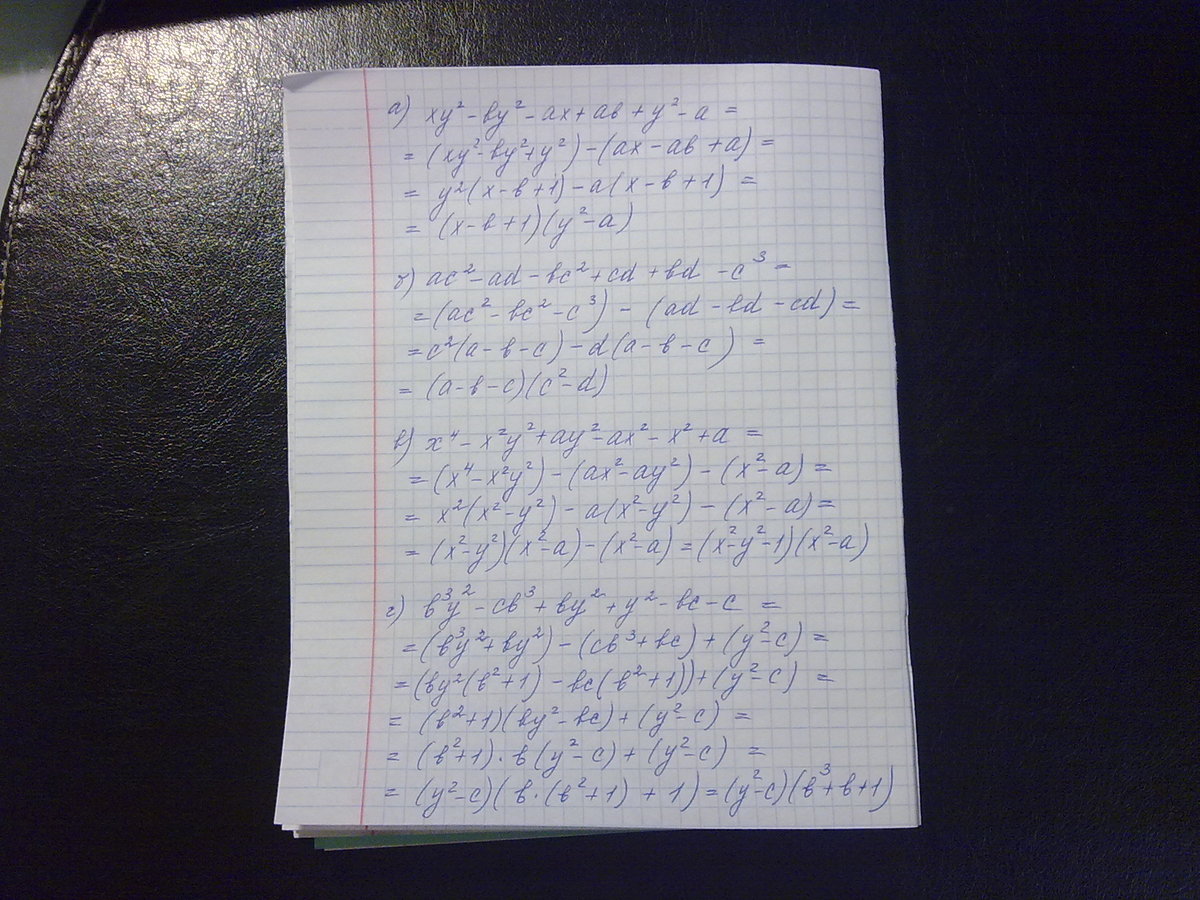 а) xy² - by² - ax + ab + y² - a =
= (xy² - by² + y²) - (ax - ab + a) =
= y²(x - b + 1) - a(x - b + 1) =
= (x - b + 1)(y² - a)
б) ac² - ad - bc² + cd + bd - c³ =
= (ac² - bc² - c³) - (ad - bd - cd) =
= c²(a - b - c) - d(a - b - c) =
= (a - b - c)(c² - d)
в) x⁴ - x²y² + ay² - ax² - x² + a =
= (x⁴ - x²y²) - (ax² - ay²) - (x² - a) =
= x²(x² - y²) - a(x² - y²) - (x² - a) =
= (x² - y²)(x² - a) - (x² - a) = (x² - y² - 1)(x² - a)
г) b³y² - cb³ + by² + y² - bc - c =
= (b³y² + by²) - (cb³ + bc) + (y² - c) =
= (by²(b² + 1) - bc(b² + 1)) + (y² - c) =
= (b² + 1)(by² - bc) + (y² - c) =
= (b² + 1) · b(y² - c) + (y² - c) =
= (y² - c)(b · (b² + 1) + 1) = (y² - c)(b³ + b + 1)